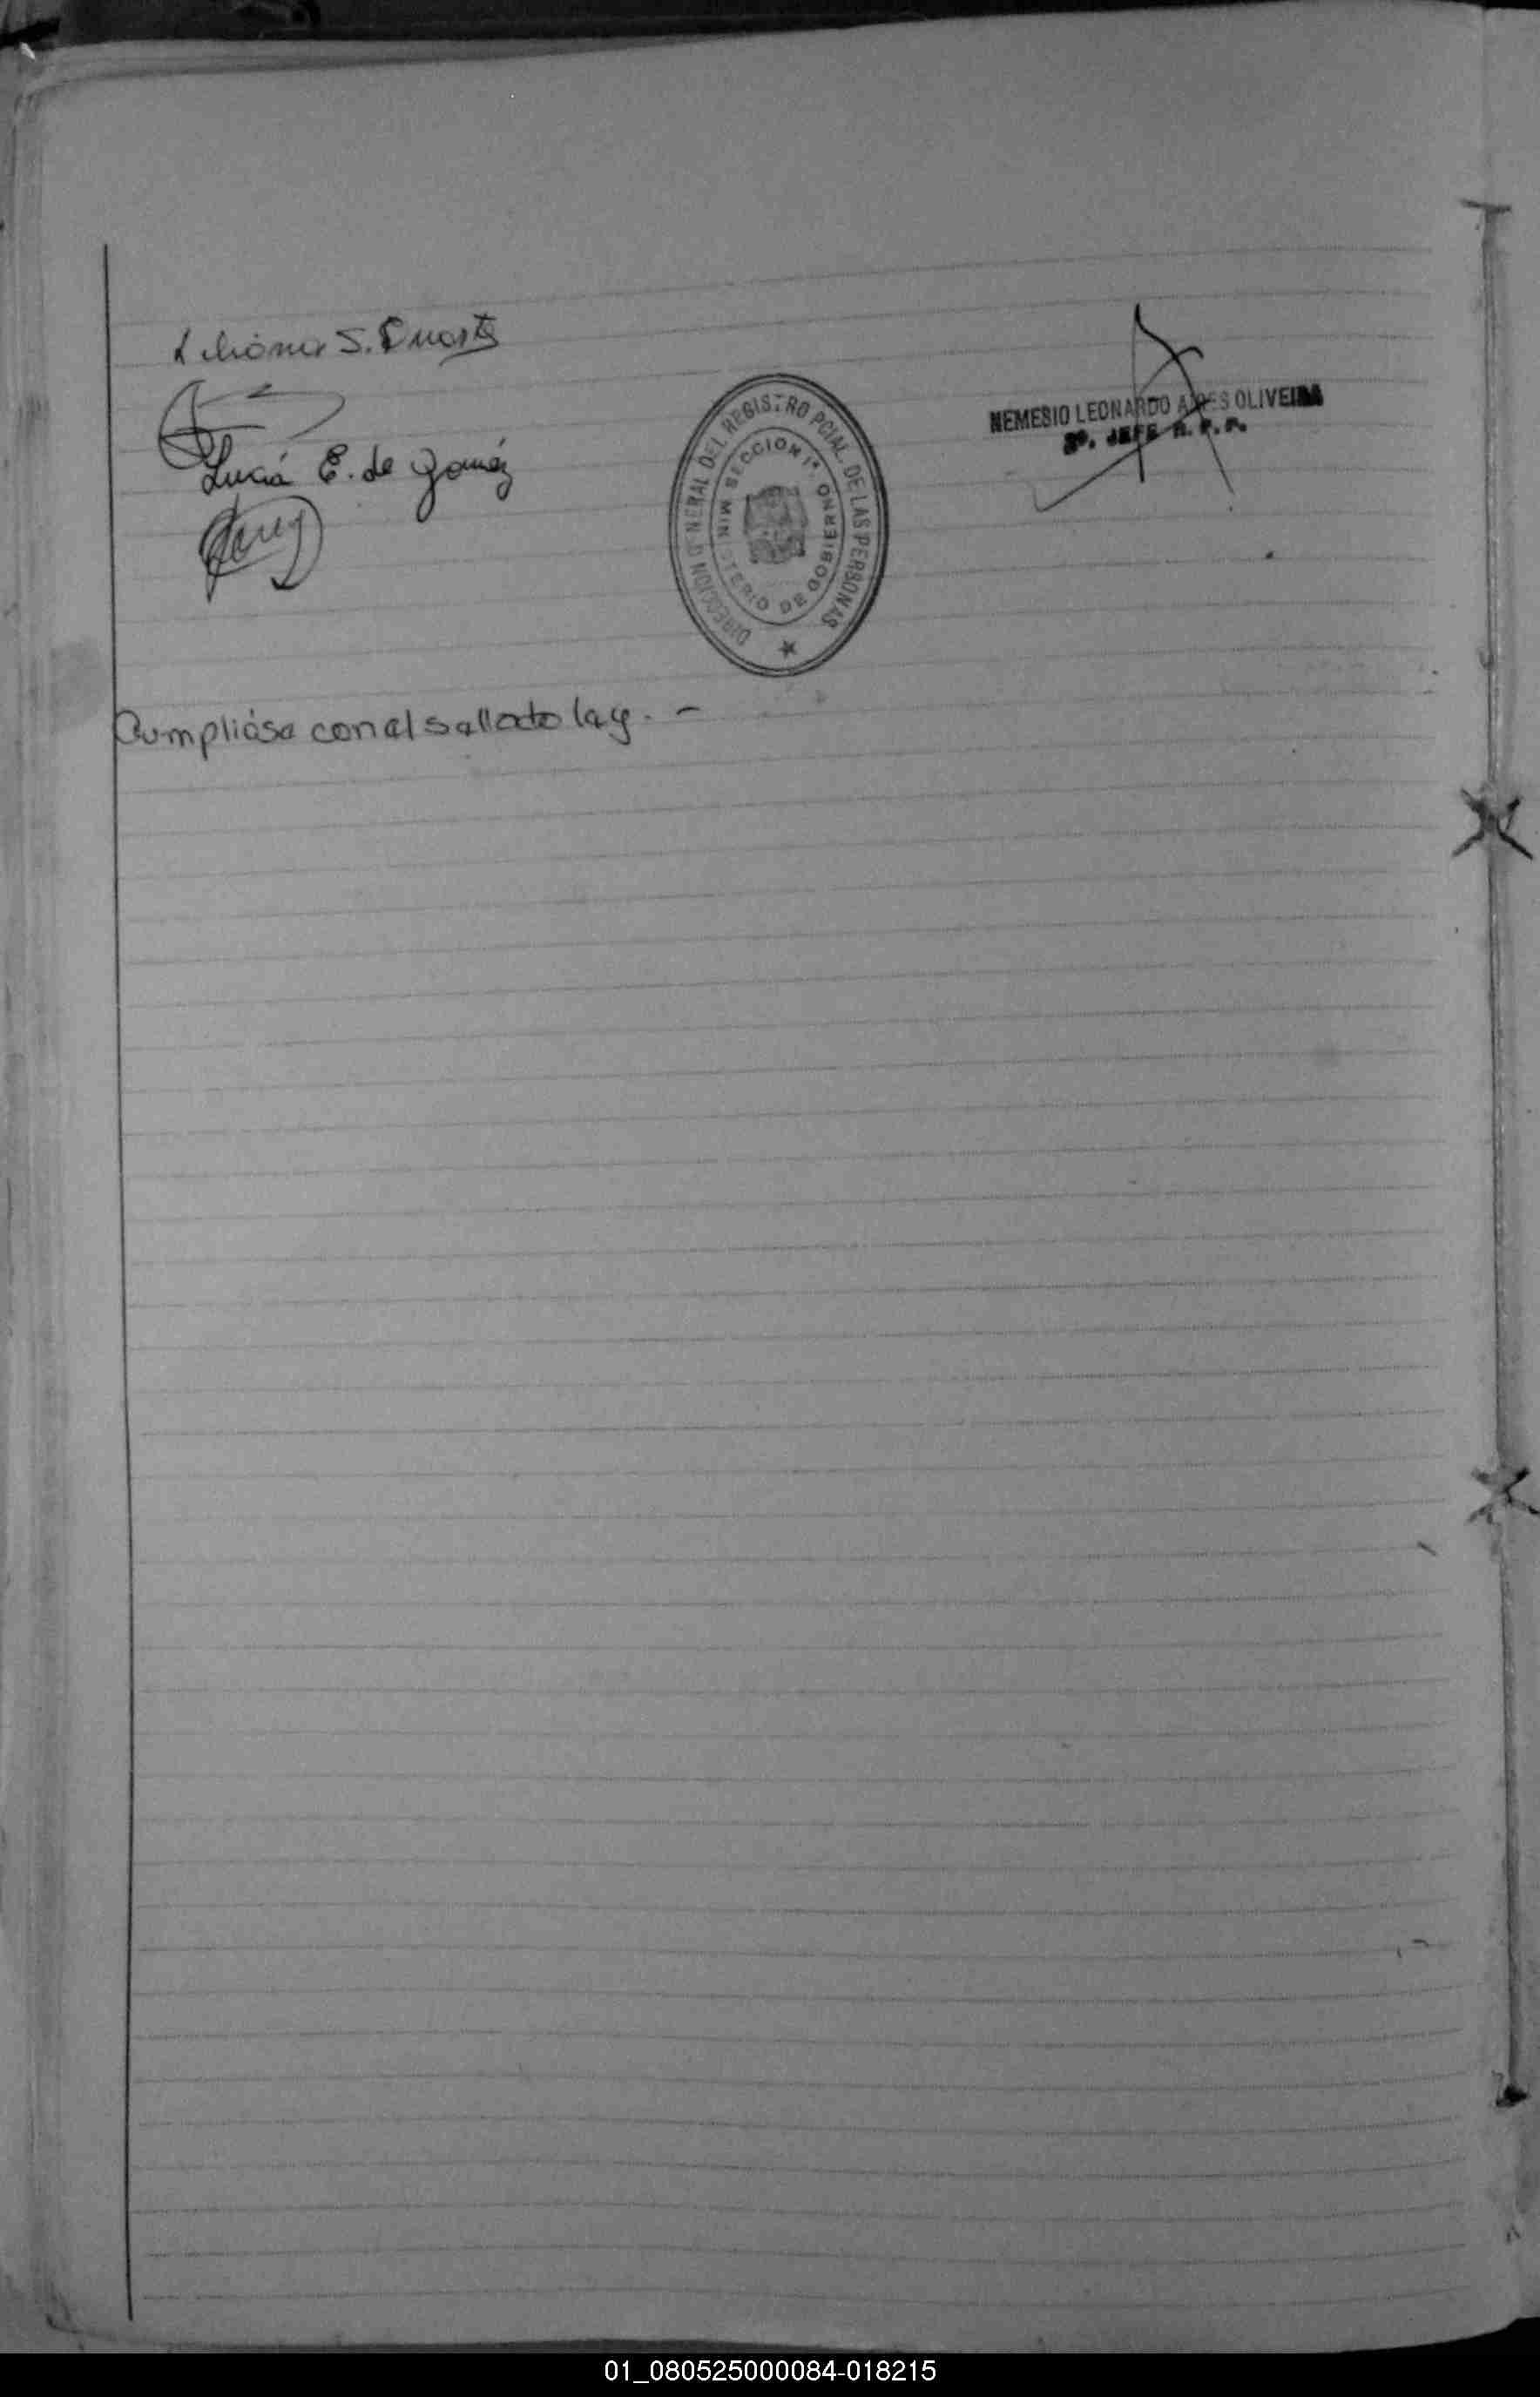 Liliana S. Duarte
Lucia E. de Gomez
DIRECCION GENERAL DEL REGISTRO PCIAL. DE LAS PERSONAS
SECCION 1ª.
MINISTERIO DE GOBIERNO
NEMESIO LEONARDO AIRES OLIVEIRA
JEFE R. P. P.
Cumpliose con el sellado ley. -
01_080525000084-018215